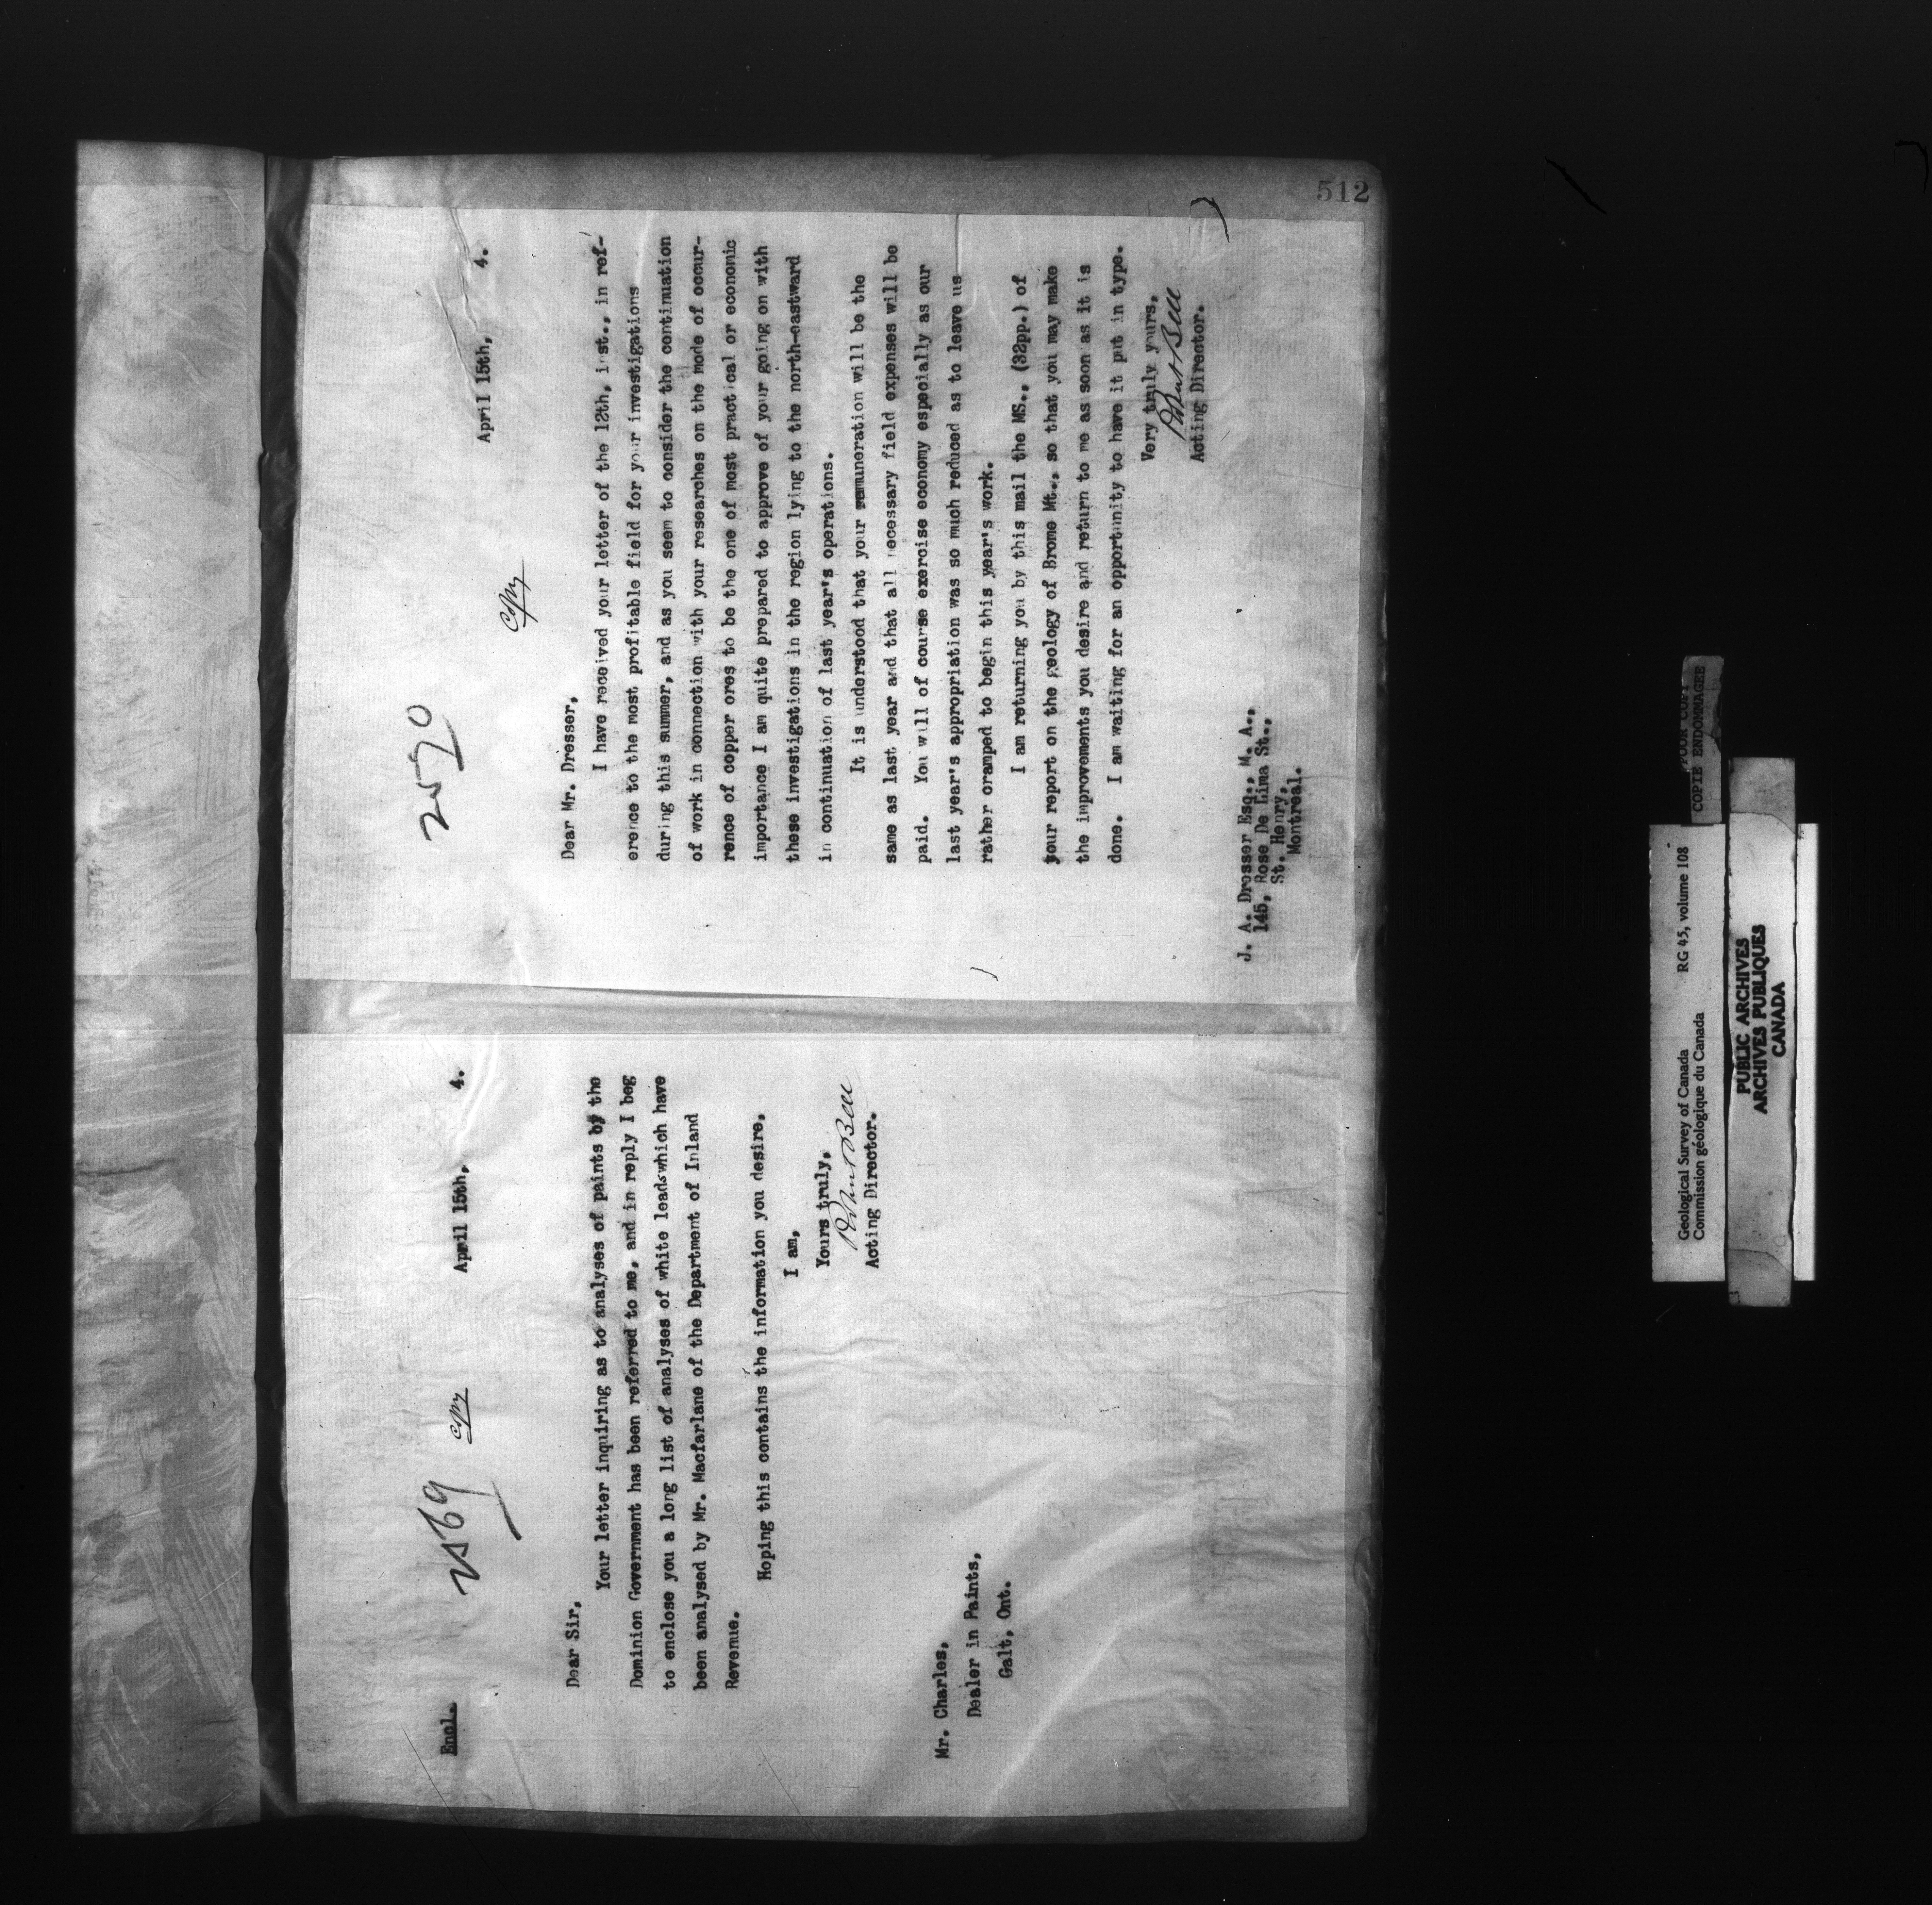 Encl.
2569
copy
April 15th, 4.
Dear Sir,
Your letter inquiring as to analyses of paints by the
Dominion Government has been referred to me, and in reply I beg
to enclose you a long list of analyses of white leads which have
been analysed by Mr. Macfarlane of the Department of Inland
Revenue.
Hoping this contains the information you desire,
I am,
Yours truly,
Robert Bell
Acting Director.
Mr. Charles,
Dealer in Paints,
Galt, Ont.
512
2570
copy
April 15th, 4.
Dear Mr. Dresser,
I have received your letter of the 12th, inst., in ref-
erence to the most profitable field for your investigations
during this summer, and as you seem to consider the continuation
of work in connection with your researches on the mode of occur-
rence of copper ores to be the one of most practical or economic
importance I am quite prepared to approve of your going on with
these investigations in the region lying to the north-eastward
in continuation of last year's operations.
It is understood that your remuneration will be the
same as last year and that all necessary field expenses will be
paid. You will of course exercise economy especially as our
last year's appropriation was so much reduced as to leave us
rather cramped to begin this year's work.
I am returning you by this mail the MS., (32pp.) of
your report on the geology of Brome Mt., so that you may make
the improvements you desire and return to me as soon as it is
done. I am waiting for an opportunity to have it put in type.
Very truly yours,
Robert Bell
Acting Director.
J. A. Dresser Esq., M. A.,
145, Rose De Lima St.,
St. Henry,
Montreal.
Geological Survey of Canada RG 45, volume 108
Commission géologique du Canada
POOR COPY
COPIE ENDOMMAGEE
PUBLIC ARCHIVES
ARCHIVES PUBLIQUES
CANADA